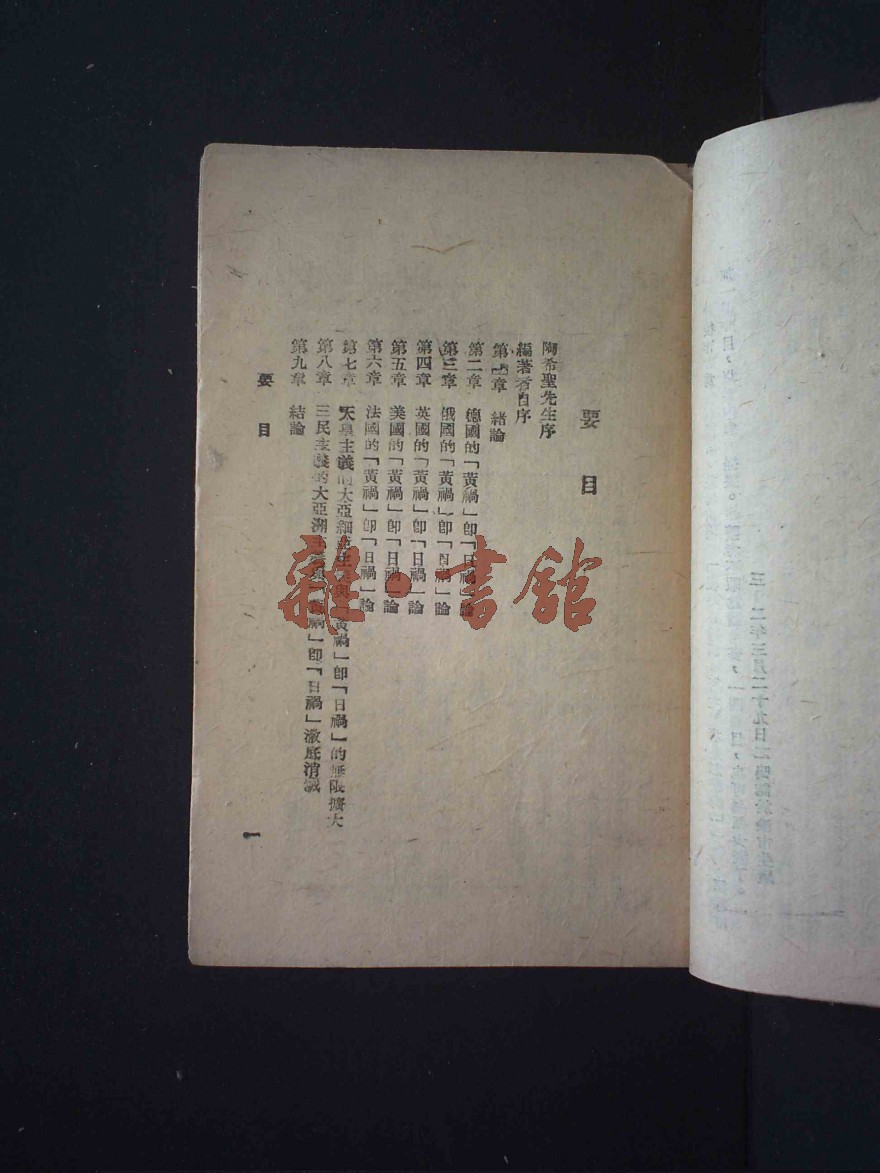 要目
陶希聖先生序
編著者自序
第一章 緒論
第二章 德國的「黃禍」卽「日禍」論
第三章 俄國的「黃禍」卽「日禍」論
第四章 英國的「黃禍」卽「日禍」論
第五章 美國的「黃禍」卽「日禍」論
第六章 法國的「黃禍」卽「日禍」論
第七章 天皇主義的大亞細亞主義與「黃禍」卽「日禍」的無限擴大
第八章 三民主義的大亞洲主義與「黃禍」卽「日禍」澈底消滅
第九章 結論
要目
一
雜·書館
三十二年三月二十九日